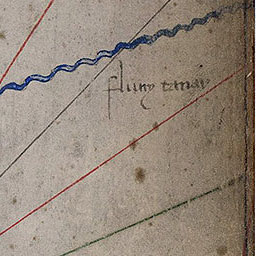 fluuy tanay